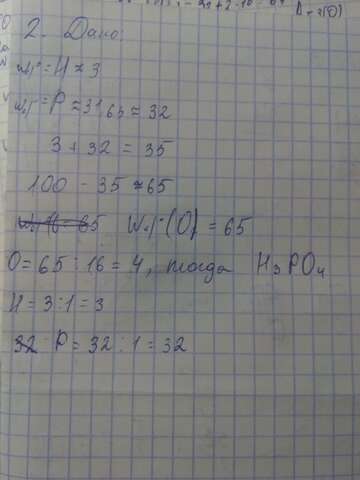 2. Дано:
ω₁ = H ≈ 3
ω₂ = P ≈ 31,65 ≈ 32
3 + 32 = 35
100 - 35 ≈ 65
(O) = 65
O = 65 : 16 = 4, тогда H₃PO₄
H = 3 : 1 = 3
P = 32 : 1 = 32